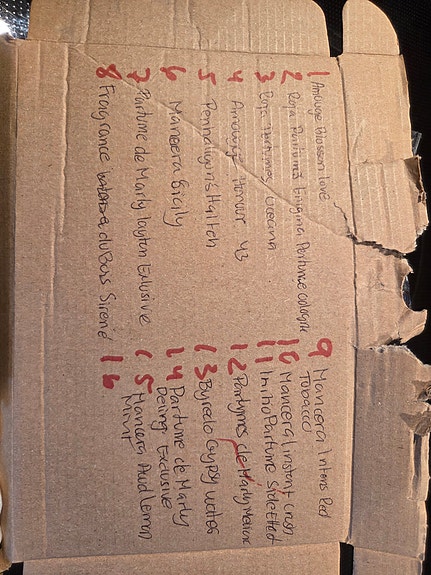 1 Amouge Blossom love
2 Roja Parfums Enigma Parfume cologne
3 Roja Parfumes oceania
4 Amouage Honour 43
5 Penhaligon's Halfeti
6 Mancera Sicily
7 Parfume de Marly layton Exlusive
8 Fragrance du Bois Sirene
9 Mancera Intens Red
Tobacco
10 Mancera instant crush
11 Initio Parfume Side Effect
12 Parfums de Marly
13 Byredo Gypsy water
14 Parfume de Marly
Delina Exclusive
15 Mancera Aoud Lemon
Mint
16